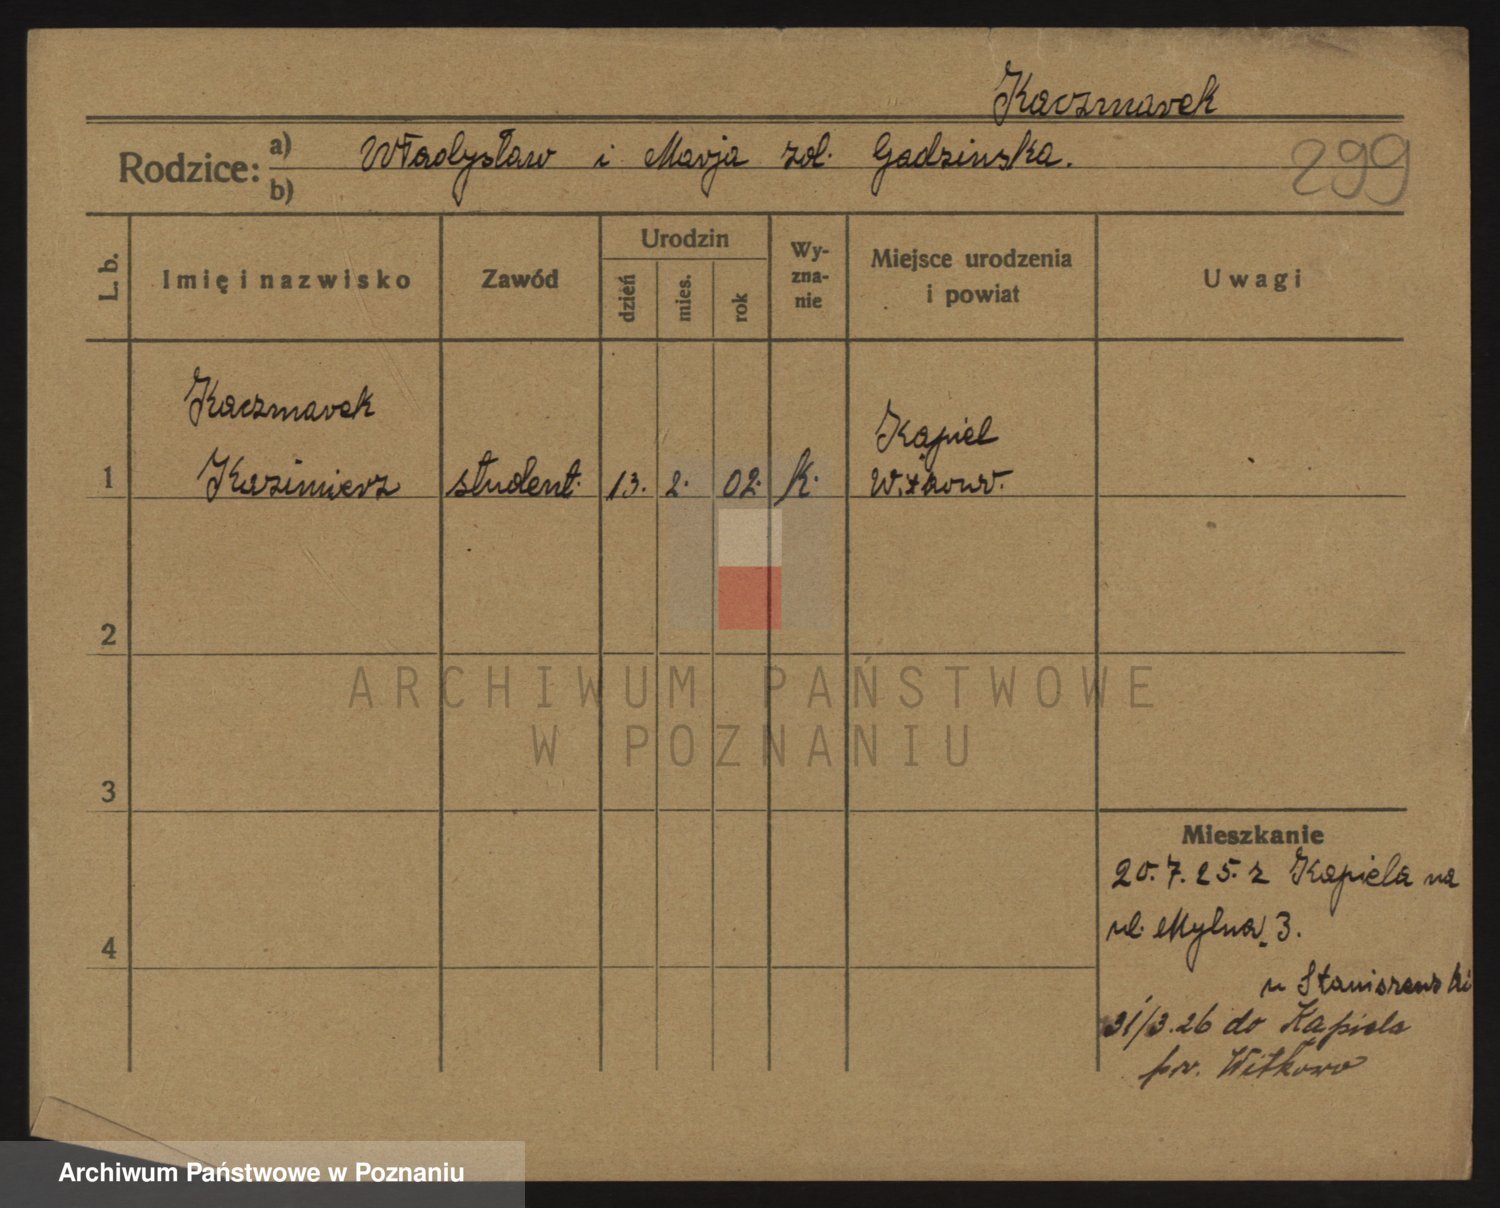 Kaczmarek
Rodzice: a) Władysław i Marja zd. Gadzinska.
b)
299
L. b.
Imię i nazwisko
Zawód
Urodzin
dzień
mies.
rok
Wy-
zna-
nie
Miejsce urodzenia
i powiat
Uwagi
Kaczmarek
Kąpiel
1 Kazimierz student. 13. 2. 02. k. Witkowo.
2
ARCHIWUM PAŃSTWOWE
W POZNANIU
3
Mieszkanie
20.7.25. z Kąpiela na
ul. Mylna 3.
4
u Staniszewski
31/3.26 do Kąpiela
pow. Witkowo
Archiwum Państwowe w Poznaniu